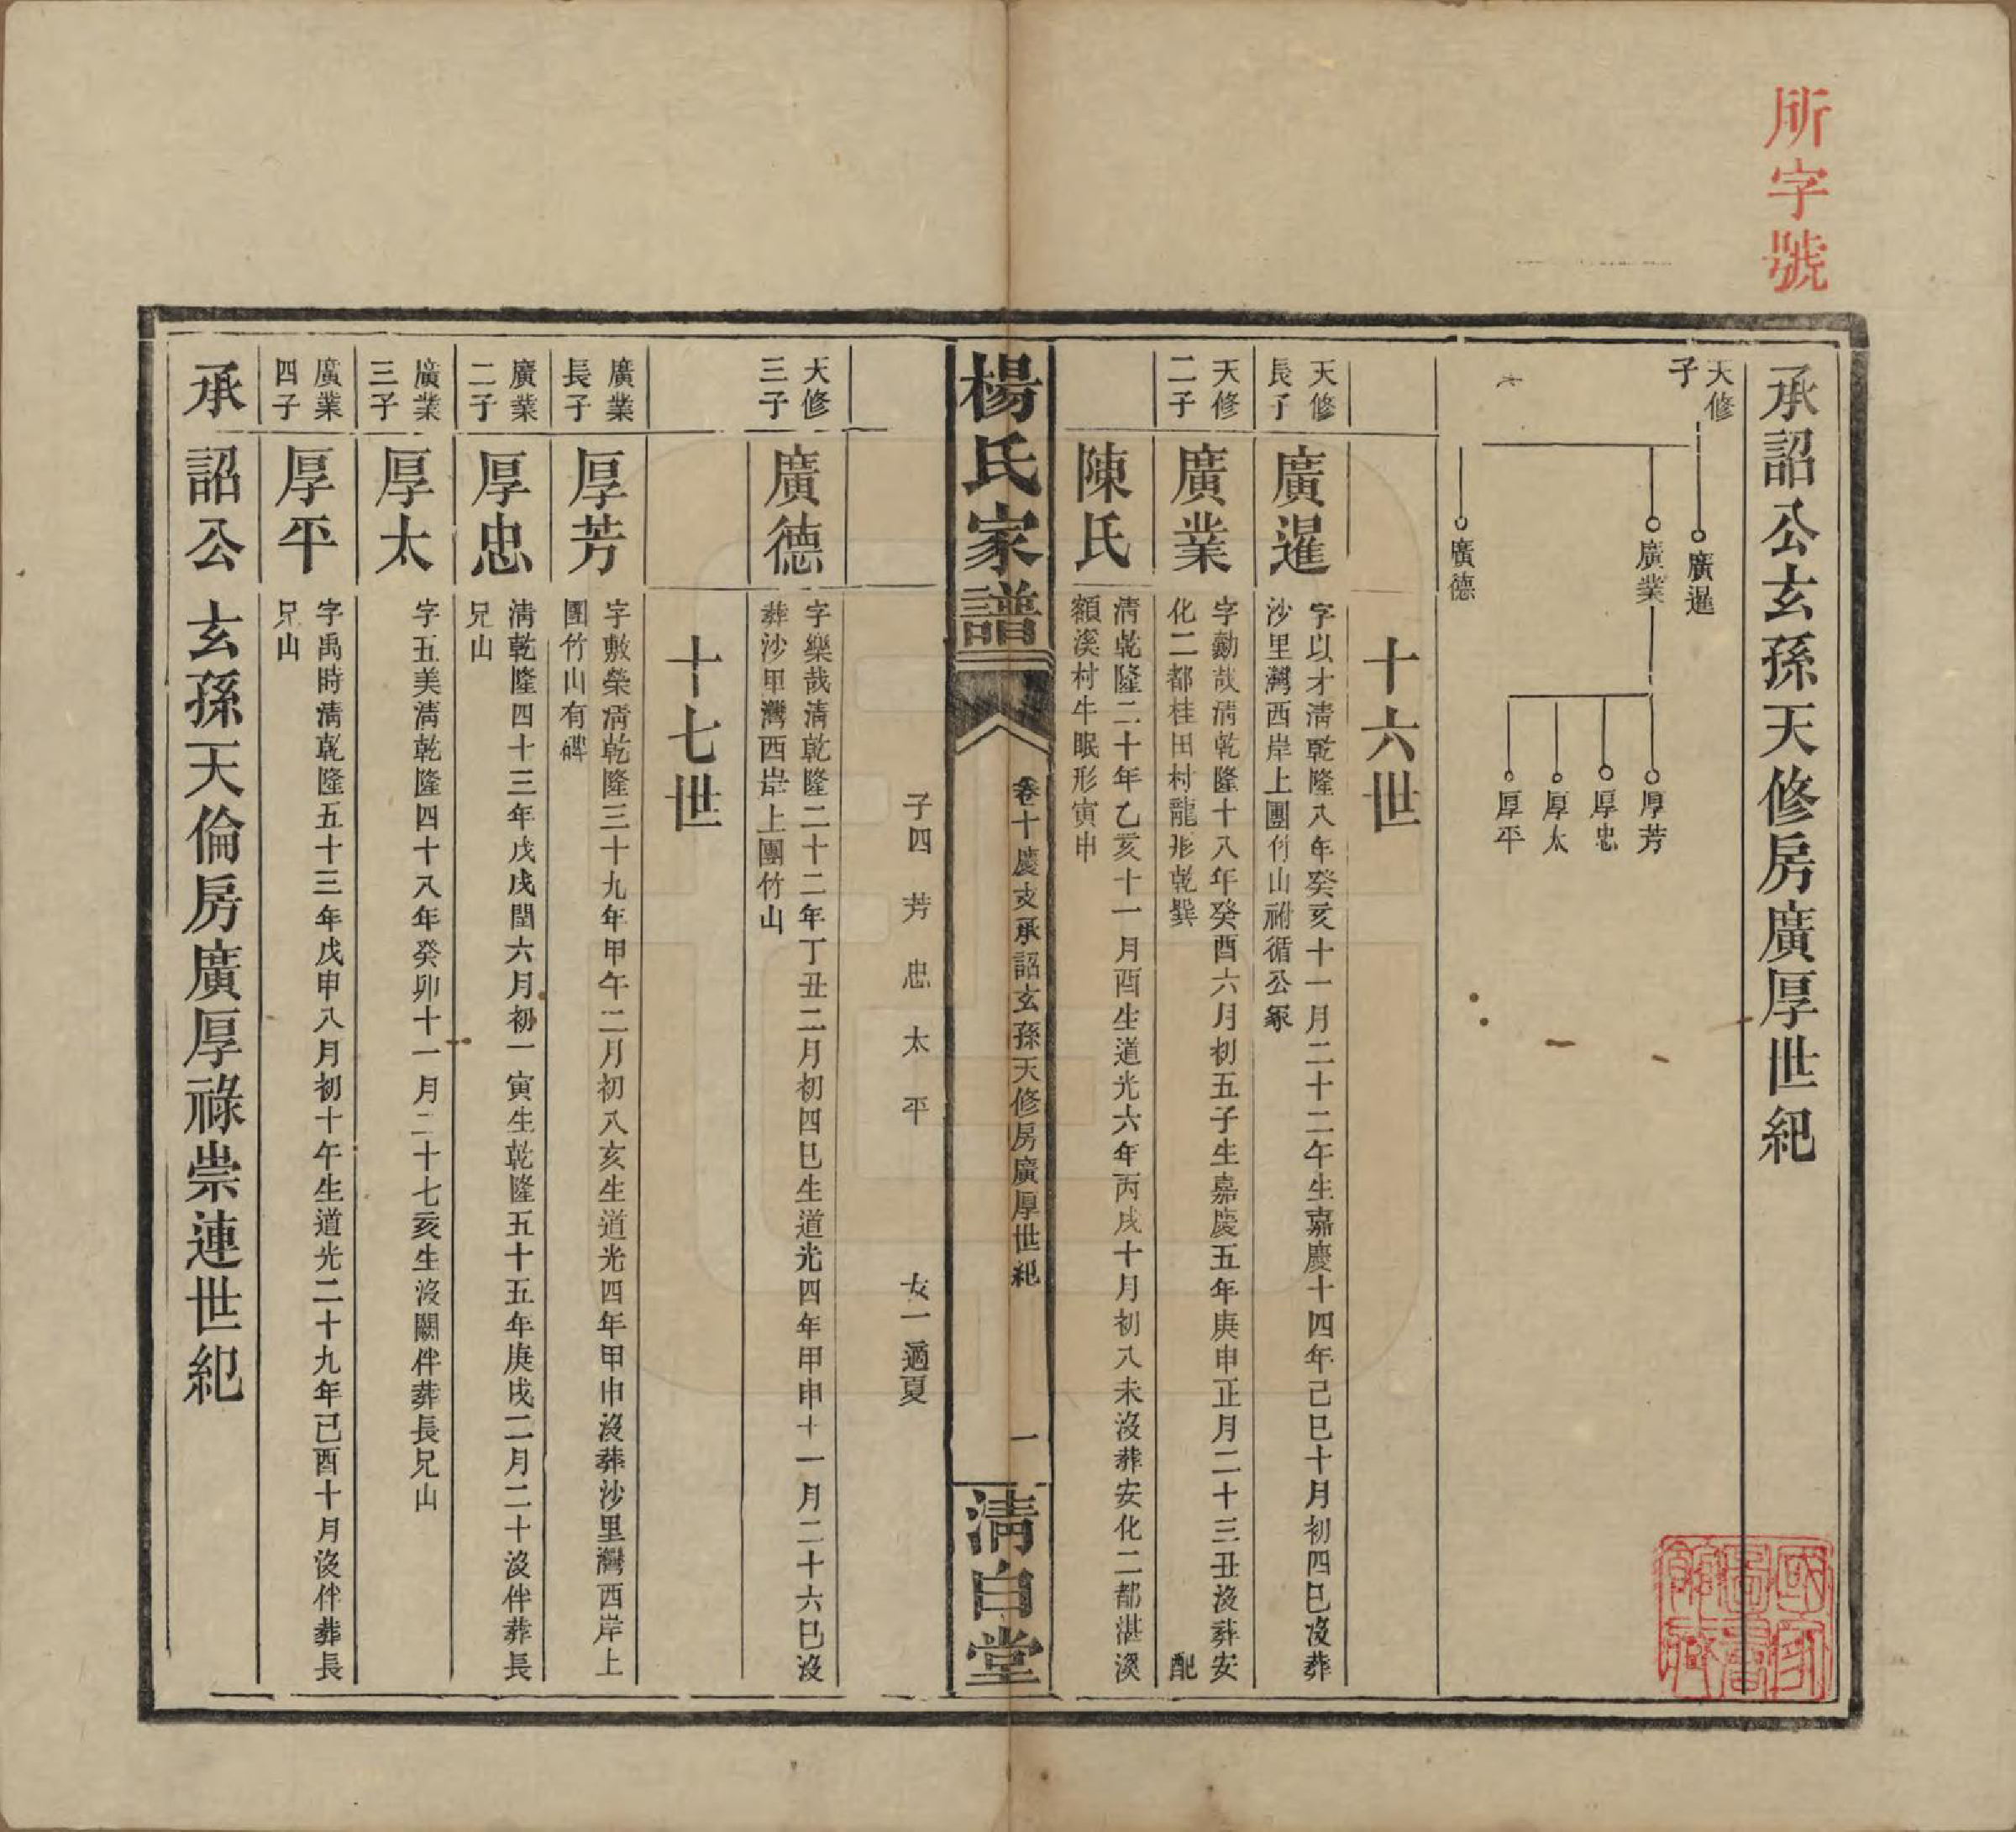 所字號
承詔公玄孫天修房廣厚世紀
天修
子
廣暹
廣業
廣德
厚芳
厚忠
厚太
厚平
十六世
天修
長子
廣暹
字以才淸乾隆八年癸亥十一月二十二午生嘉慶十四年己巳十月初四巳沒葬
沙里灣西岸上團竹山祔循公冢
天修
二子
廣業
字勷哉淸乾隆十八年癸酉六月初五子生嘉慶五年庚申正月二十三丑沒葬安
化二都桂田村龍形乾巽
配
陳氏
淸乾隆二十年乙亥十一月酉生道光六年丙戌十月初八未沒葬安化二都湛溪
額溪村牛眠形寅申
楊氏家譜
卷十慶支承詔玄孫天修房廣厚世紀
一
淸白堂
子四 芳 忠 太 平 女一適夏
天修
三子
廣德
字樂哉淸乾隆二十二年丁丑二月初四巳生道光四年甲申十一月二十六巳沒
葬沙里灣西岸上團竹山
十七世
廣業
長子
厚芳
字敷榮淸乾隆三十九年甲午二月初八亥生道光四年甲申沒葬沙里灣西岸上
團竹山有碑
廣業
二子
厚忠
淸乾隆四十三年戊戌閏六月初一寅生乾隆五十五年庚戌二月二十沒伴葬長
兄山
廣業
三子
厚太
字五美淸乾隆四十八年癸卯十一月二十七亥生沒闕伴葬長兄山
廣業
四子
厚平
字禹時淸乾隆五十三年戊申八月初十午生道光二十九年己酉十月沒伴葬長
兄山
承詔公玄孫天倫房廣厚祿崇連世紀